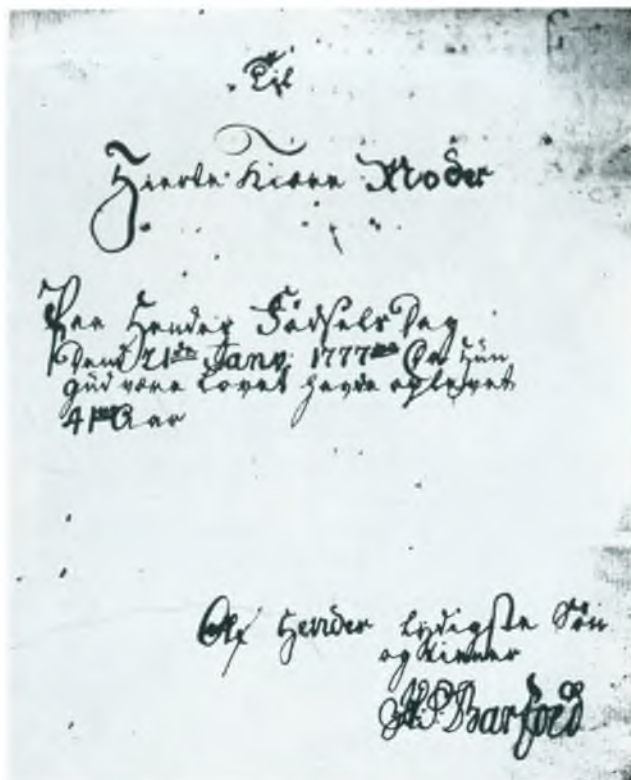 Til
Hierte Kiære Moder
Paa Hendes Födsels Dag
Dend 21de Janv: 1777 Da Hun
gud være lovet havde oplevet
41 Aar
Af Hendes lydigste Sön
og tienner
Barfoed